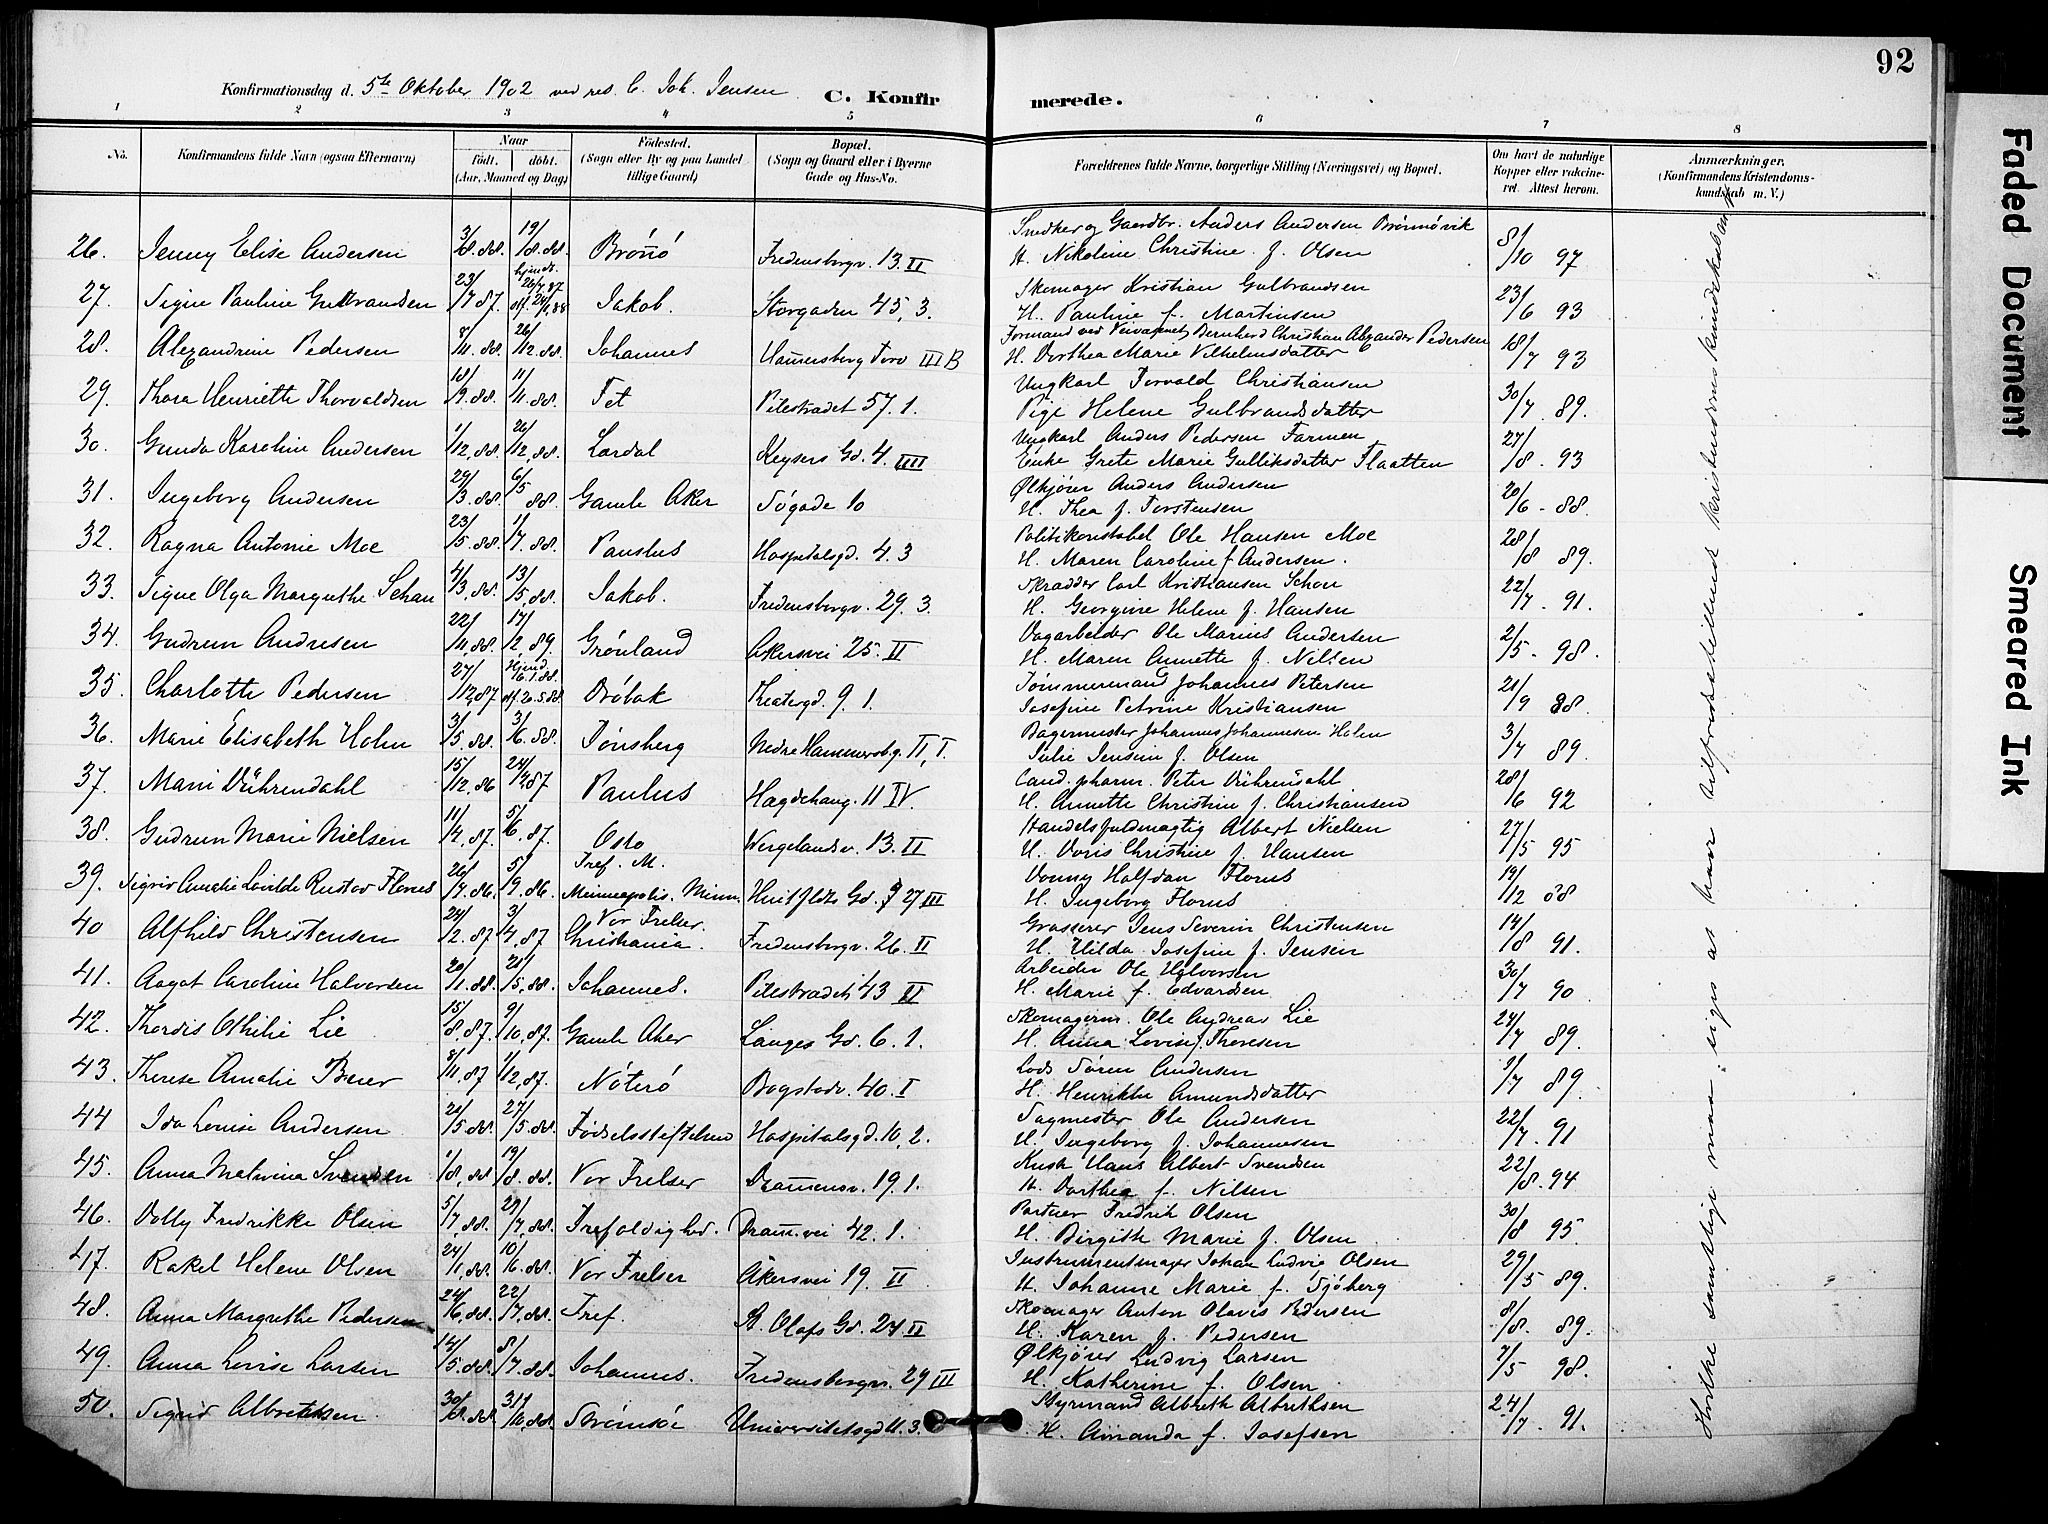 92
Konfirmationsdag d. 5te Oktober 1902 ved res. C. Joh. Jensen C. Konfirmerede.
1 2 3 4 5 6 7 8
No. Konfirmandens fulde Navn (ogsaa Efternavn) Naar født. døbt. (Aar, Maaned og Dag) Fødested. (Sogn eller By og paa Landet tillige Gaard) Bopæl. (Sogn og Gaard eller i Byerne Gade og Hus-No. Forældrenes fulde Navne, borgerlige Stilling (Næringsvei) og Bopæl. Om havt de naturlige Kopper eller vakcineret. Attest herom. Anmærkninger. (Konfirmandens Kristendomskundskab m. V.)
26. Jenny Elise Andersen 3/8.88. 19/8.88. Brönö Fredensborgv. 13. II Snedker og Gaardbr. Anders Andersen Brönnövik
H. Nikoline Christine f. Olsen 8/10 97
27. Signe Pauline Gulbrandsen 23/7 87. Jakob. Storgaden 45, 3. Skomager Kristian Gulbrandsen
H. Pauline f. Martinsen 23/6 93
28. Alexandrine Pedersen 8/11.88. 26/12.88. Johannes Hammersborg Torv III B Formand ved Veivæsenet, Bernhard Christian Alexander Pedersen
H. Dorthea Marie Vilhelmsdatter 18/7 93
29. Thora Henriette Thorvaldsen 18/9.88. 11/11.88. Fet Pilestrædet 57.1. Ungkarl Torvald Christiansen
Pige Helene Gulbrandsdatter 30/7. 89.
30. Gunda Karoline Andersen 1/12.88. 26/12.88. Lardal Keysers Gd. 4. IIII Ungkarl Anders Pedersen Farmen
Enke Grete Marie Gulliksdatter Flaatten 27/8. 93
31. Ingeborg Andersen 29/3.88. 6/5 88. Gamle Aker Søgade 10 Ølkjører Anders Andersen
H. Thea f. Torstensen 20/6 - 88.
32. Ragna Antonie Moe 23/5.88. 1/7.88. Paulus Hospitalsgd. 4. 3 Politikonstabel Ole Hansen Moe
H. Maren Caroline f. Andersen. 28/8 89.
33. Signe Olga Margrethe Schau 4/3.88. 13/5.88. Jakob. Fredensborgv. 29. 3. Skrædder Carl Kristiansen Schou
H. Georgine Helene f. Hansen 22/7. 91.
34. Gudrun Andresen 22/11.88. 17/2.89. Grønland Akersvei 25. II Dagarbeider Ole Marius Andersen
H. Maren Annette f. Nilsen 2/5 - 98.
35. Charlotte Pedersen 27/12,87 Drøbak Theatergd. 9. 1. Tømmermand Johannes Petersen
Josefine Petrine Kristiansen 21/9 88.
36. Marie Elisabeth Holm 3/5.88. 3/6.88. Tønsberg Nedre Hammersbg. II, I. Bagermester Johannes Johannesen Holm
Julie Jensine f. Olsen 3/7 89.
37. Marie Dührendahl 15/12.86 Paulus Hægdehaug. 11 IV. Cand. pharm. Peter Dührendahl
H. Annette Christine f. Christiansen 28/6 92
38. Gudrun Marie Nielsen 11/4.87. 5/6.87. Oslo Wergelandsv. 13. II Handelsfuldmægtig Albert Nielsen
H. Doris Christine f. Hansen 27/5 95
39. Sigrid Amalie Lovilde Rustad Florus 26/7.86. 5/9.86. Tref. M. Minneapolis. Minn. Huitfeldts Gd. 27 III Halfdan Florus
H. Ingeborg Florus 19/12 88
40 Alfhild Christensen 24/2.87. 3/4.87 Vor Frelser. Christiania. Fredensborgv. 26. II Grosserer Jens Severin Christensen
H. Hilda Josefine f. Jensen 14/8 91.
41. Aagot Caroline Halvorsen 20/1.88. 21/5.88. Johannes. Pilestrædet 43 II Arbeider Ole Halvorsen
H. Marie f. Edvardsen 30/7 90
42. Thordis Othilie Lie 15/8.87. 9/10.87. Gamle Aker Langes Gd. 6. 1. Skomagerm. Ole Andreas Lie
H. Anna Lovise f. Thoresen 24/7 89.
43. Therese Amalie Beer 8/11.87 1/12.87. Nøterø Bogstadv. 40. I Lods Søren Andersen
H. Henrikke Amundsdatter 1/7 89.
44 Ida Louise Andersen 21/5.88. 27/5.88. Fødselsstiftelsen Hospitalsgd. 10, 2. Sagmester Ole Andersen
H. Ingeborg f. Johannesen 22/7. 91
45. Anna Malvina Svendsen 1/8.88 19/8.88. Vor Frelser Drammensv. 19. 1. Kusk Hans Albert Svendsen
H. Dorthea f. Nilsen 22/8. 94
46. Dolly Fredrikke Olsen 5/7.88. 29/7.88. Trefoldighed. Dramvei 42. 1. Partner Fredrik Olsen
H. Birgith Marie f. Olsen 30/8 95.
47. Rakel Helene Olsen 24/1.88. 10/6.88. Vor Frelser Akersvei 19. II Instrumentmager Johan Ludvig Olsen
H. Johanne Marie f. Sjöberg 29/5 89.
48. Anna Margrethe Pedersen 24/6.88. 22/7.88. Tref. St. Olafs Gd. 24 II Skomager Anton Olavis Pedersen
H. Karen f. Pedersen 8/8. 89.
49. Anna Lovise Larsen 14/5.88. 8/7.88 Johannes. Fredensborgv. 29 III Ølkjører Ludvig Larsen
H. Katherine f. Olsen 7/5 98.
50. Sigrid Albrethsen 30/8.88 31/10.88. Strømsø Universitetsgd. 11. 3. Styrmand Albreth Albrethsen
H. Amanda f. Josefsen 24/7 91.
Hvilke samtlige maa siges at have tilfredsstillende kristendomskundskab
Faded Document
Smeared Ink